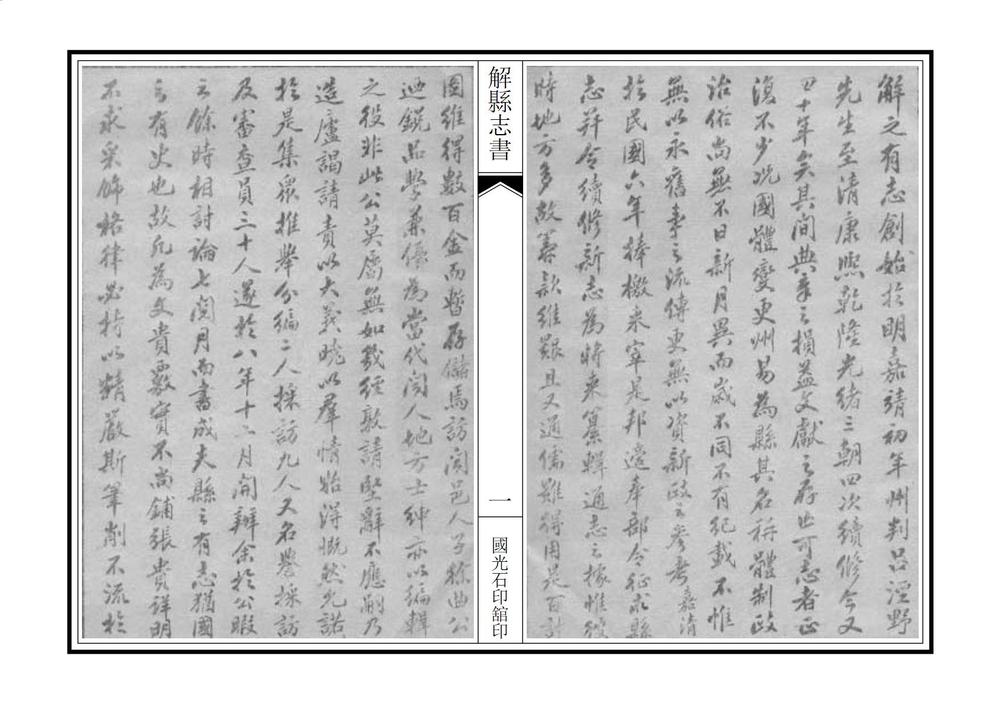 解之有志創始於明嘉靖初年州判呂涇野
先生至清康熙乾隆光緒三朝四次續修今又
四十年矣其間典章之損益文獻之存亡可志者正
復不少況國體變更州易為縣其名稱體制政
治俗尚無不日新月異而歲不同不有紀載不惟
無以永舊事之流傳更無以資新政之參考嘉清
於民國六年捧檄來宰是邦適奉部令征求縣
志并令續修新志為將來纂輯通志之據惟彼
時地方多故籌款維艱且又通儒難得用是百計
圖維得數百金而暫存儲焉訪聞邑人子徐曲公
迺銳品學兼優為當代聞人地方士紳亦以編輯
之役非此公莫屬無如幾經敦請堅辭不應嗣乃
造廬謁請責以大義曉以羣情始得慨然允諾
於是集眾推舉分編二人採訪九人又名譽採訪
及審查員三十人遂於八年十二月開辦余於公暇
之餘時相討論七閱月而書成夫縣之有志猶國
之有史也故凡為文貴覈實不尚鋪張貴詳明
不求采飾格律必持以精嚴斯筆削不流於
解縣志書
一
國光石印舘印